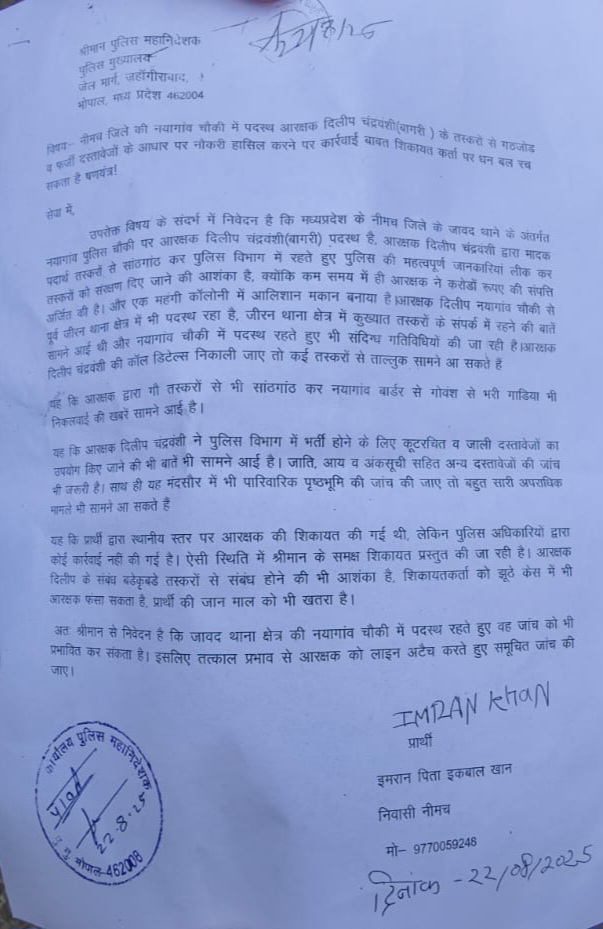 श्रीमान पुलिस महानिदेशक
पुलिस मुख्यालय
जेल मार्ग, जहाँगीराबाद,
भोपाल, मध्य प्रदेश 462004
विषय:- नीमच जिले की नयागांव चौकी में पदस्थ आरक्षक दिलीप चंद्रवंशी(बागरी ) के तस्करों से गठजोड
व फर्जी दस्तावेजों के आधार पर नौकरी हासिल करने पर कार्रवाई बाबत शिकायत कर्ता पर धन बल रच
सकता है षणयंत्र!
सेवा में,
उपरोक्त विषय के संदर्भ में निवेदन है कि मध्यप्रदेश के नीमच जिले के जावद थाने के अंतर्गत
नयागांव पुलिस चौकी पर आरक्षक दिलीप चंद्रवंशी(बागरी) पदस्थ है, आरक्षक दिलीप चंद्रवंशी द्वारा मादक
पदार्थ तस्करों से सांठगांठ कर पुलिस विभाग में रहते हुए पुलिस की महत्वपूर्ण जानकारियां लीक कर
तस्करों को संरक्षण दिए जाने की आशंका है, क्योंकि कम समय में ही आरक्षक ने करोडों रूपए की संपत्ति
अर्जित की है। और एक महंगी कॉलोनी में आलिशान मकान बनाया है।आरक्षक दिलीप नयागांव चौकी से
पूर्व जीरन थाना क्षेत्र में भी पदस्थ रहा है, जीरन थाना क्षेत्र में कुख्यात तस्करों के संपर्क में रहने की बातें
सामने आई थी और नयागांव चौकी में पदस्थ रहते हुए भी संदिग्ध गतिविधियों की जा रही है।आरक्षक
दिलीप चंद्रवंशी की कॉल डिटेल्स निकाली जाए तो कई तस्करों से ताल्लुक सामने आ सकते हैं
यह कि आरक्षक द्वारा गौ तस्करों से भी सांठगांठ कर नयागांव बार्डर से गोवंश से भरी गाडिया भी
निकलवाई की खबरें सामने आई है।
यह कि आरक्षक दिलीप चंद्रवंशी ने पुलिस विभाग में भर्ती होने के लिए कूटरचित व जाली दस्तावेजों का
उपयोग किए जाने की भी बातें भी सामने आई है। जाति, आय व अंकसूची सहित अन्य दस्तावेजों की जांच
भी जरूरी है। साथ ही यह मंदसौर में भी पारिवारिक पृष्ठभूमि की जांच की जाए तो बहुत सारी अपराधिक
मामले भी सामने आ सकते हैं
यह कि प्रार्थी द्वारा स्थानीय स्तर पर आरक्षक की शिकायत की गई थी, लेकिन पुलिस अधिकारियों द्वारा
कोई कार्रवाई नहीं की गई है। ऐसी स्थिति में श्रीमान के समक्ष शिकायत प्रस्तुत की जा रही है। आरक्षक
दिलीप के संबंध बडेकृबडे तस्करों से संबंध होने की भी आशंका है, शिकायतकर्ता को झूठे केस में भी
आरक्षक फंसा सकता है, प्रार्थी की जान माल को भी खतरा है।
अतः श्रीमान से निवेदन है कि जावद थाना क्षेत्र की नयागांव चौकी में पदस्थ रहते हुए वह जांच को भी
प्रभावित कर संकता है। इसलिए तत्काल प्रभाव से आरक्षक को लाइन अटैच करते हुए समूचित जांच की
जाए।
IMRAN KHAN
प्रार्थी
इमरान पिता इकबाल खान
निवासी नीमच
मो– 9770059246
दिनांक - 22/08/2025
कार्यालय पुलिस महानिदेशक
22.8.25
भोपाल-462008